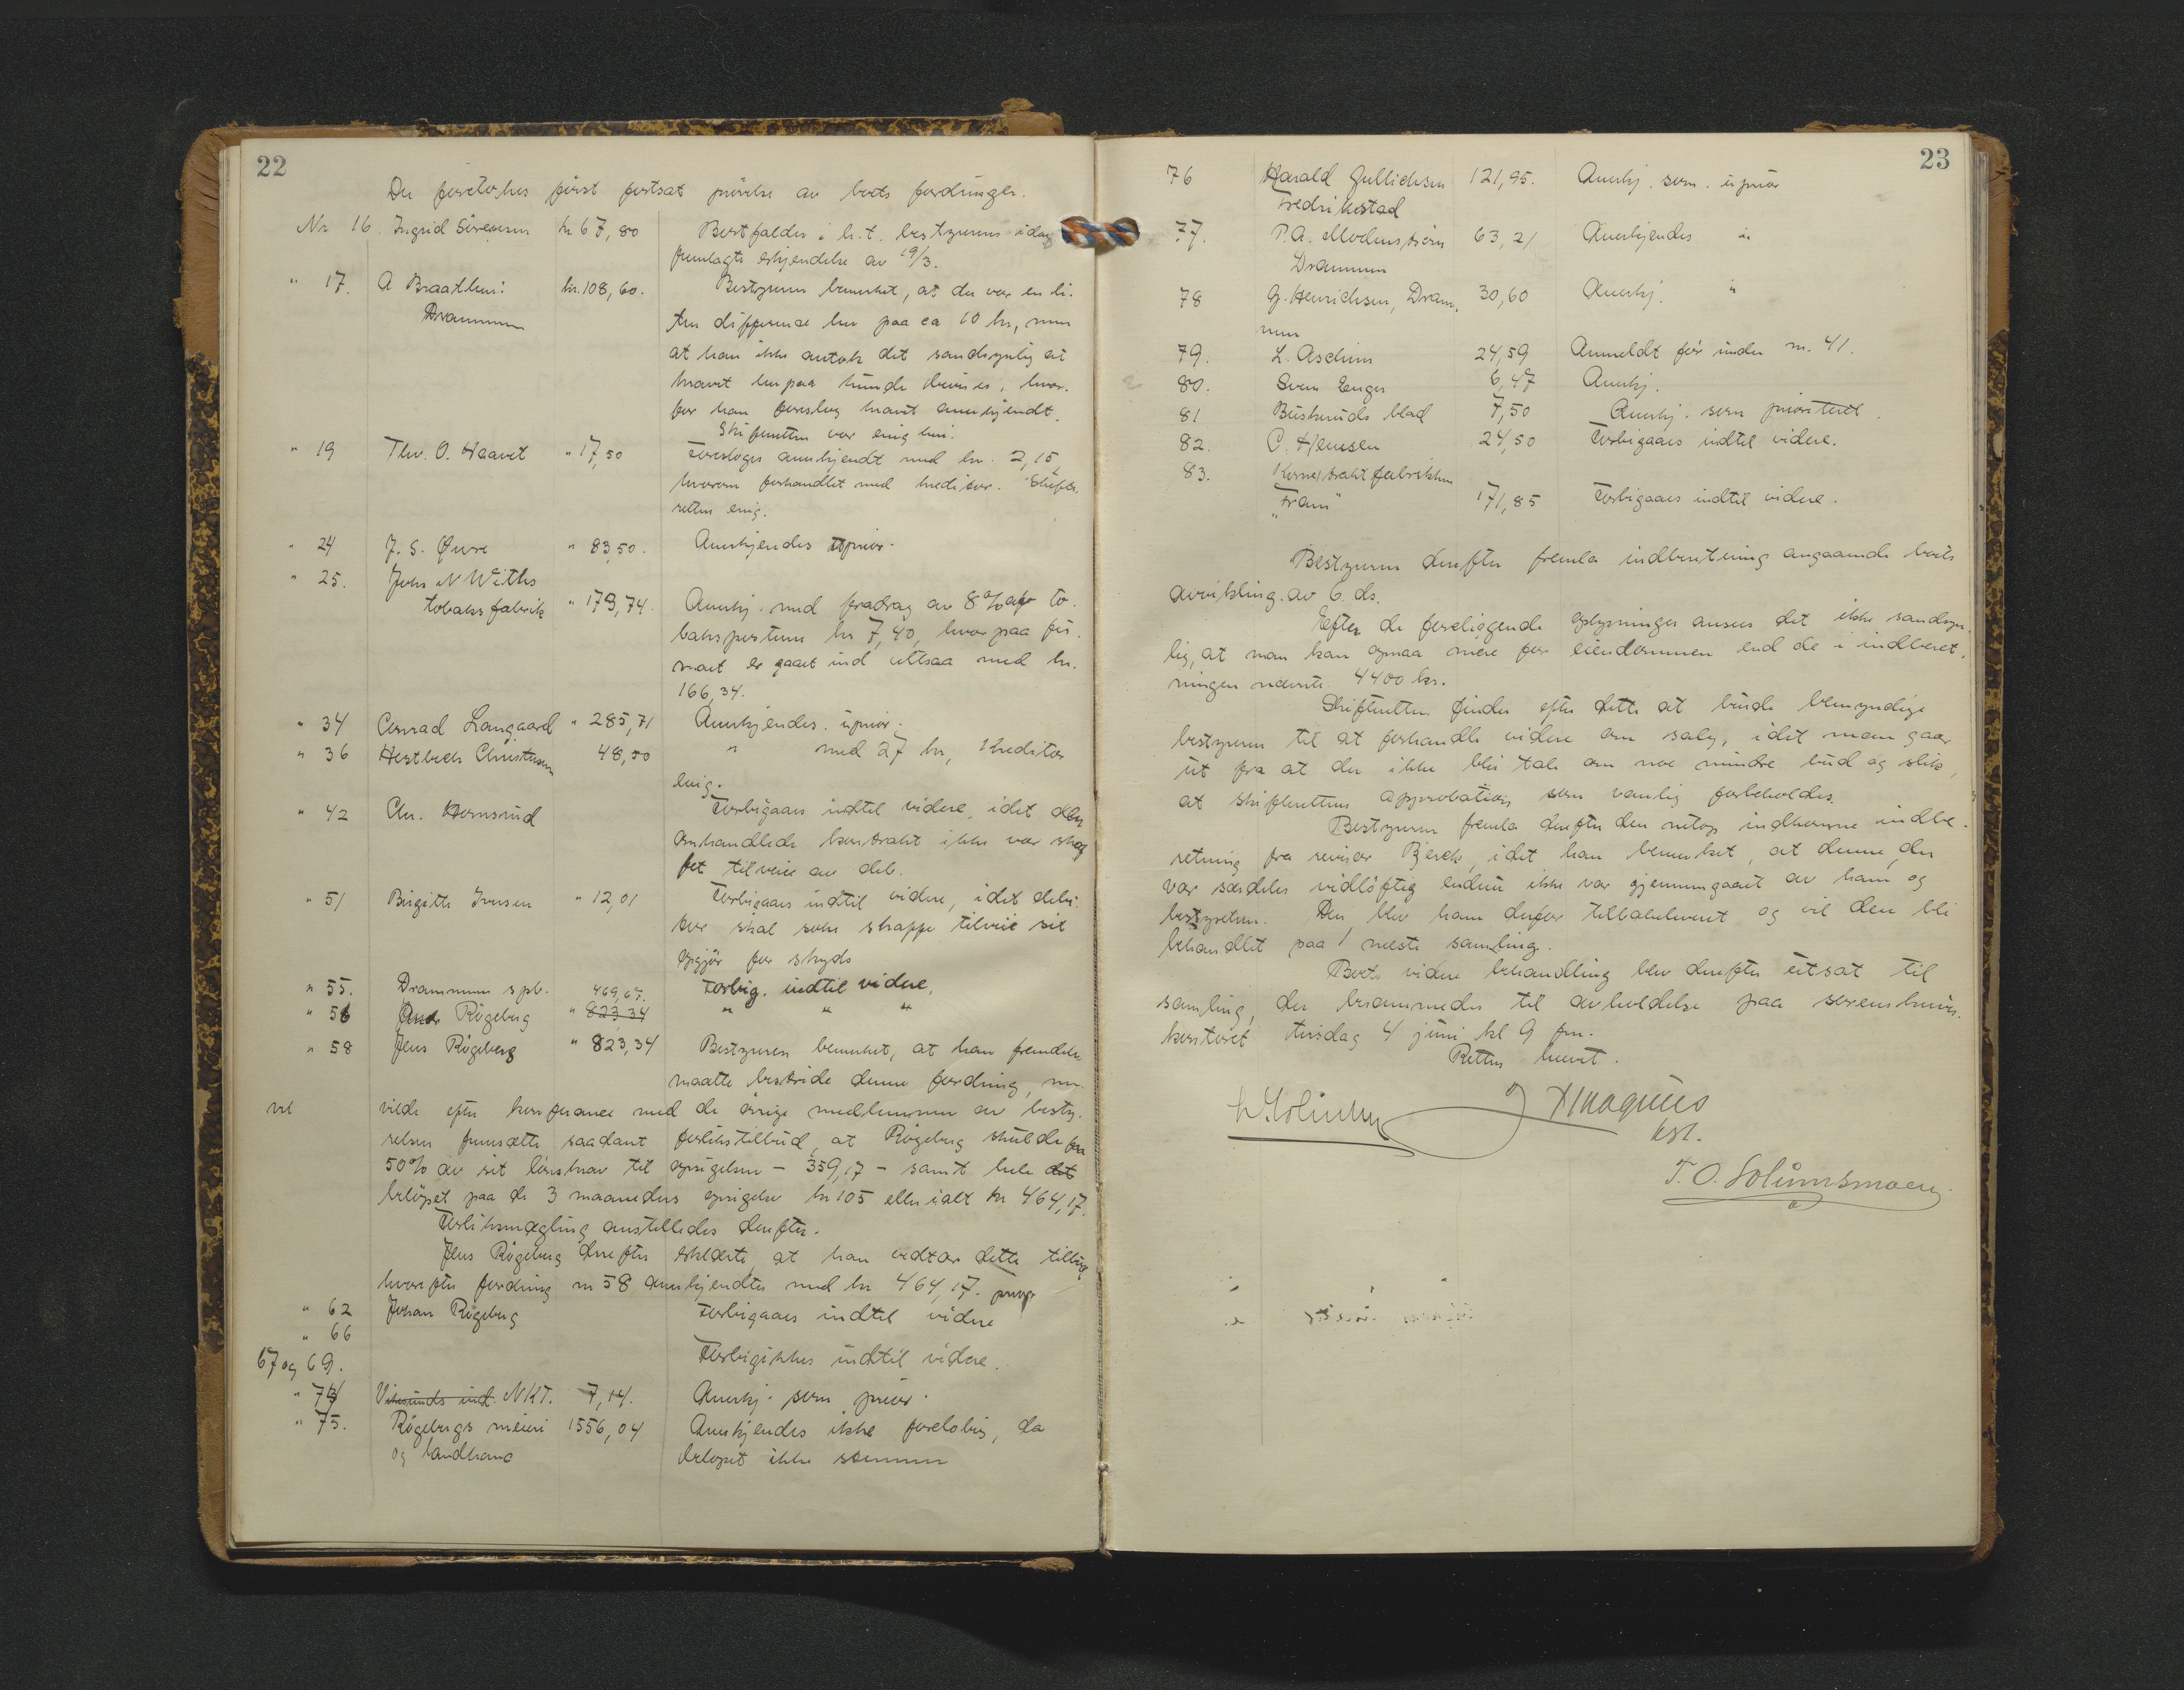 22
Der foretokes først fortsat prövelse av boets fordringer.
Nr 16. Ingrid Sörensen kr 67,80 Bortfalder i h.t. bestyrerens idag
fremlagte erkjendelse av 19/3.
" 17. A Braathen: kr. 108,60. Bestyreren bemerket, at der var en li-
Drammen ten differense her paa ca 10 kr, men
at han ikke antok det sandsynlig at
kravet herpaa kunde bevises, hvor-
for han foreslog kravet anerkjendt.
Skifteretten var enig heri.
" 19 Thv. O. Haavet " 17,50 Foresloges anerkjendt med kr. 2,15
hvorom forhandlet med kreditor. Skifte-
retten enig.
" 24 J. S. Øvre " 83,50. Anerkjendes uprior.
" 25. Johs N Withs
tobaksfabrik " 173,74. Anerkj. med fradrag av 8% av to-
baksposten kr 7,40, hvorpaa fir-
maet er gaaet ind altsaa med kr.
166,34.
" 34 Conrad Langaard " 285,71 Anerkjendes. uprior.
" 36 Hestbech Christensen 48,50 " med 27 kr, kreditor
enig.
" 42 Chr. Hornsrud Forbigaaes indtil videre, idet den
omhandlede kontrakt ikke var skaf
fet tilveie av deb.
" 51 Birgithe Iversen " 12,01 Forbigaaes indtil videre, idet debi-
tor skal søke skaffe tilveie sit
opgjör for skyds
" 55. Drammens spb. 469,67. Forbig. indtil videre,
" 56 And. Rögeberg " 823,34 " " "
" 58 Jens Rögeberg " 823,34 Bestyreren bemerket, at han fremdeles
maatte bestride denne fordring, men
vil vilde efter konferance med de övrige medlemmer av besty-
relsen fremsætte saadant forlikstilbud, at Rögeberg skulde faa
50% av sit lönskrav til opsigelsen – 359,17 – samt hele det
belöpet paa de 3 maaneders opsigelse kr 105 eller ialt kr 464,17.
Forliksmægling anstilledes derefter.
Jens Rögeberg derefter erklærte, at han vedtar dette tilbud
hvorefter fordring nr 58 anerkjendtes med kr 464,17. prior
" 62 Johan Rögeberg Forbigaaes indtil videre
" 66
67 og 69. Forbigikkes indtil videre.
" 74 Vikesunds ind. NKT. 7,14. Anerkj. som prior.
" 75. Rögebergs meieri 1556,04 Anerkjendes ikke foreløbig, da
og landhand beløpet ikke stemmer
23
76 Harald Gullichsen 121,95. Anerkj. som uprior
Fredrikstad
77. P.A. Modenstjern 63,21 Anerkjendes "
Drammen
78 G. Henrichsen, Dram- 30,60 Anerkj. "
men
79. L. Aschim 24,59 Anmeldt før under nr. 41.
80. Sven Enger 6,47 Anerkj.
81 Buskeruds blad 7,50 Anerkj. som prioriteret.
82. C. Hemsen 24,50 Forbigaaes indtil videre.
83. Kornextrakt fabrikken
"Fram" 171,85 Forbigaaes indtil videre.
Bestyreren derefter fremla indberetning angaaende boets
avvikling av 6. ds.
Efter de foreliggende oplysninger ansees det ikke sandsyn-
lig, at man kan opnaa mere for eiendommen end de i indberet-
ningen nævnte 4400 kr.
Skifteretten finder efter dette at burde bemyndige
bestyreren til at forhandle videre om salg, idet man gaar
ut fra at der ikke blir tale om noe mindre bud og slik,
at skifterettens approbation som vanlig forbeholdes.
Bestyreren fremla derefter den netop indkomne indbe-
retning fra revisor Bjerck, idet han bemerket, at denne, der
var særdeles vidlöftig endnu ikke var gjennemgaaet av ham og
bestyrelsen. Den blev ham derfor tilbakeleveret og vil den bli
behandlet paa 1 neste samling.
Boets videre behandling blev derefter utsat til
samling, der berammedes til avholdelse paa sorenskriver-
kontoret tirsdag 4 juni kl 9 fm.
Retten hævet.
Magnus
kst.
T. O. Solumsmoen